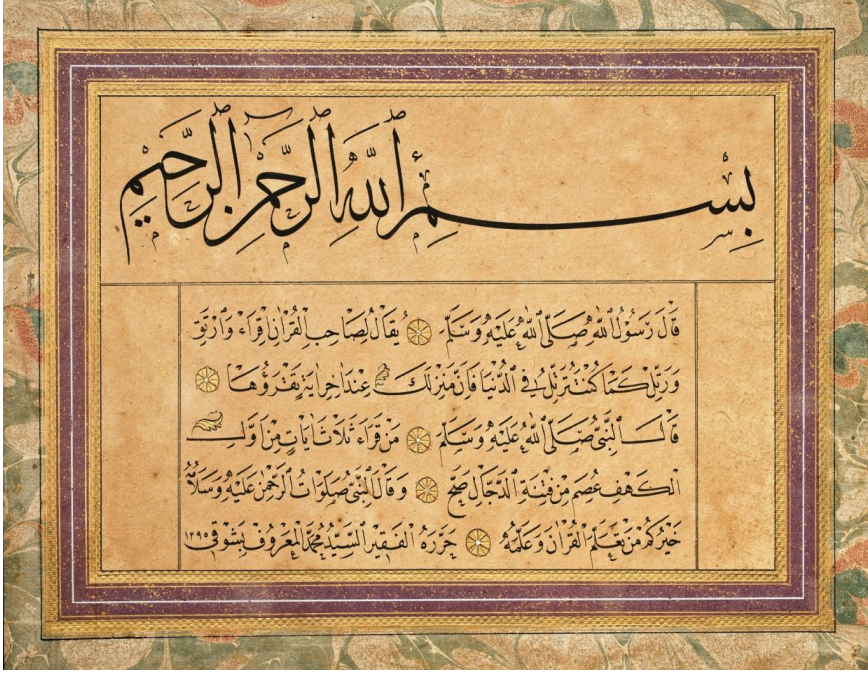 بِسْمِ ٱللَّهِ ٱلرَّحْمٰنِ ٱلرَّحِيمِ
قَالَ رَسُولُ اللّٰهِ صَلَّى اللّٰهُ عَلَيْهِ وَسَلَّمَ يُقَالُ لِصَاحِبِ الْقُرْاٰنِ اِقْرَاءْ وَارْتَقِ
وَرَتِّلْ كَمَا كُنْتَ تُرَتِّلُ فِى الدُّنْيَا فَاِنَّ مَنْزِلَكَ عِنْدَ اٰخِرِ اٰيَةٍ تَقْرَؤُهَا
قَالَ النَّبِىُّ صَلَّى اللّٰهُ عَلَيْهِ وَسَلَّمَ مَنْ قَرَاءَ ثَلَاثَ اٰيَاتٍ مِنْ اَوَّلِ
الْكَهْفِ عُصِمَ مِنْ فِتْنَةِ الدَّجَّالِ صَحَّ وَقَالَ النَّبِىُّ صَلَوَاتُ الرَّحْمٰنِ عَلَيْهِ وَسَلَامُهُ
خَيْرُكُمْ مَنْ تَعَلَّمَ الْقُرْاٰنَ وَعَلَّمَهُ حَرَّرَهُ الْفَقِيرُ السَّيِّدُ مُحَمَّدُ الْمَعْرُوفُ بِشَوْقِى ١٢٩٥